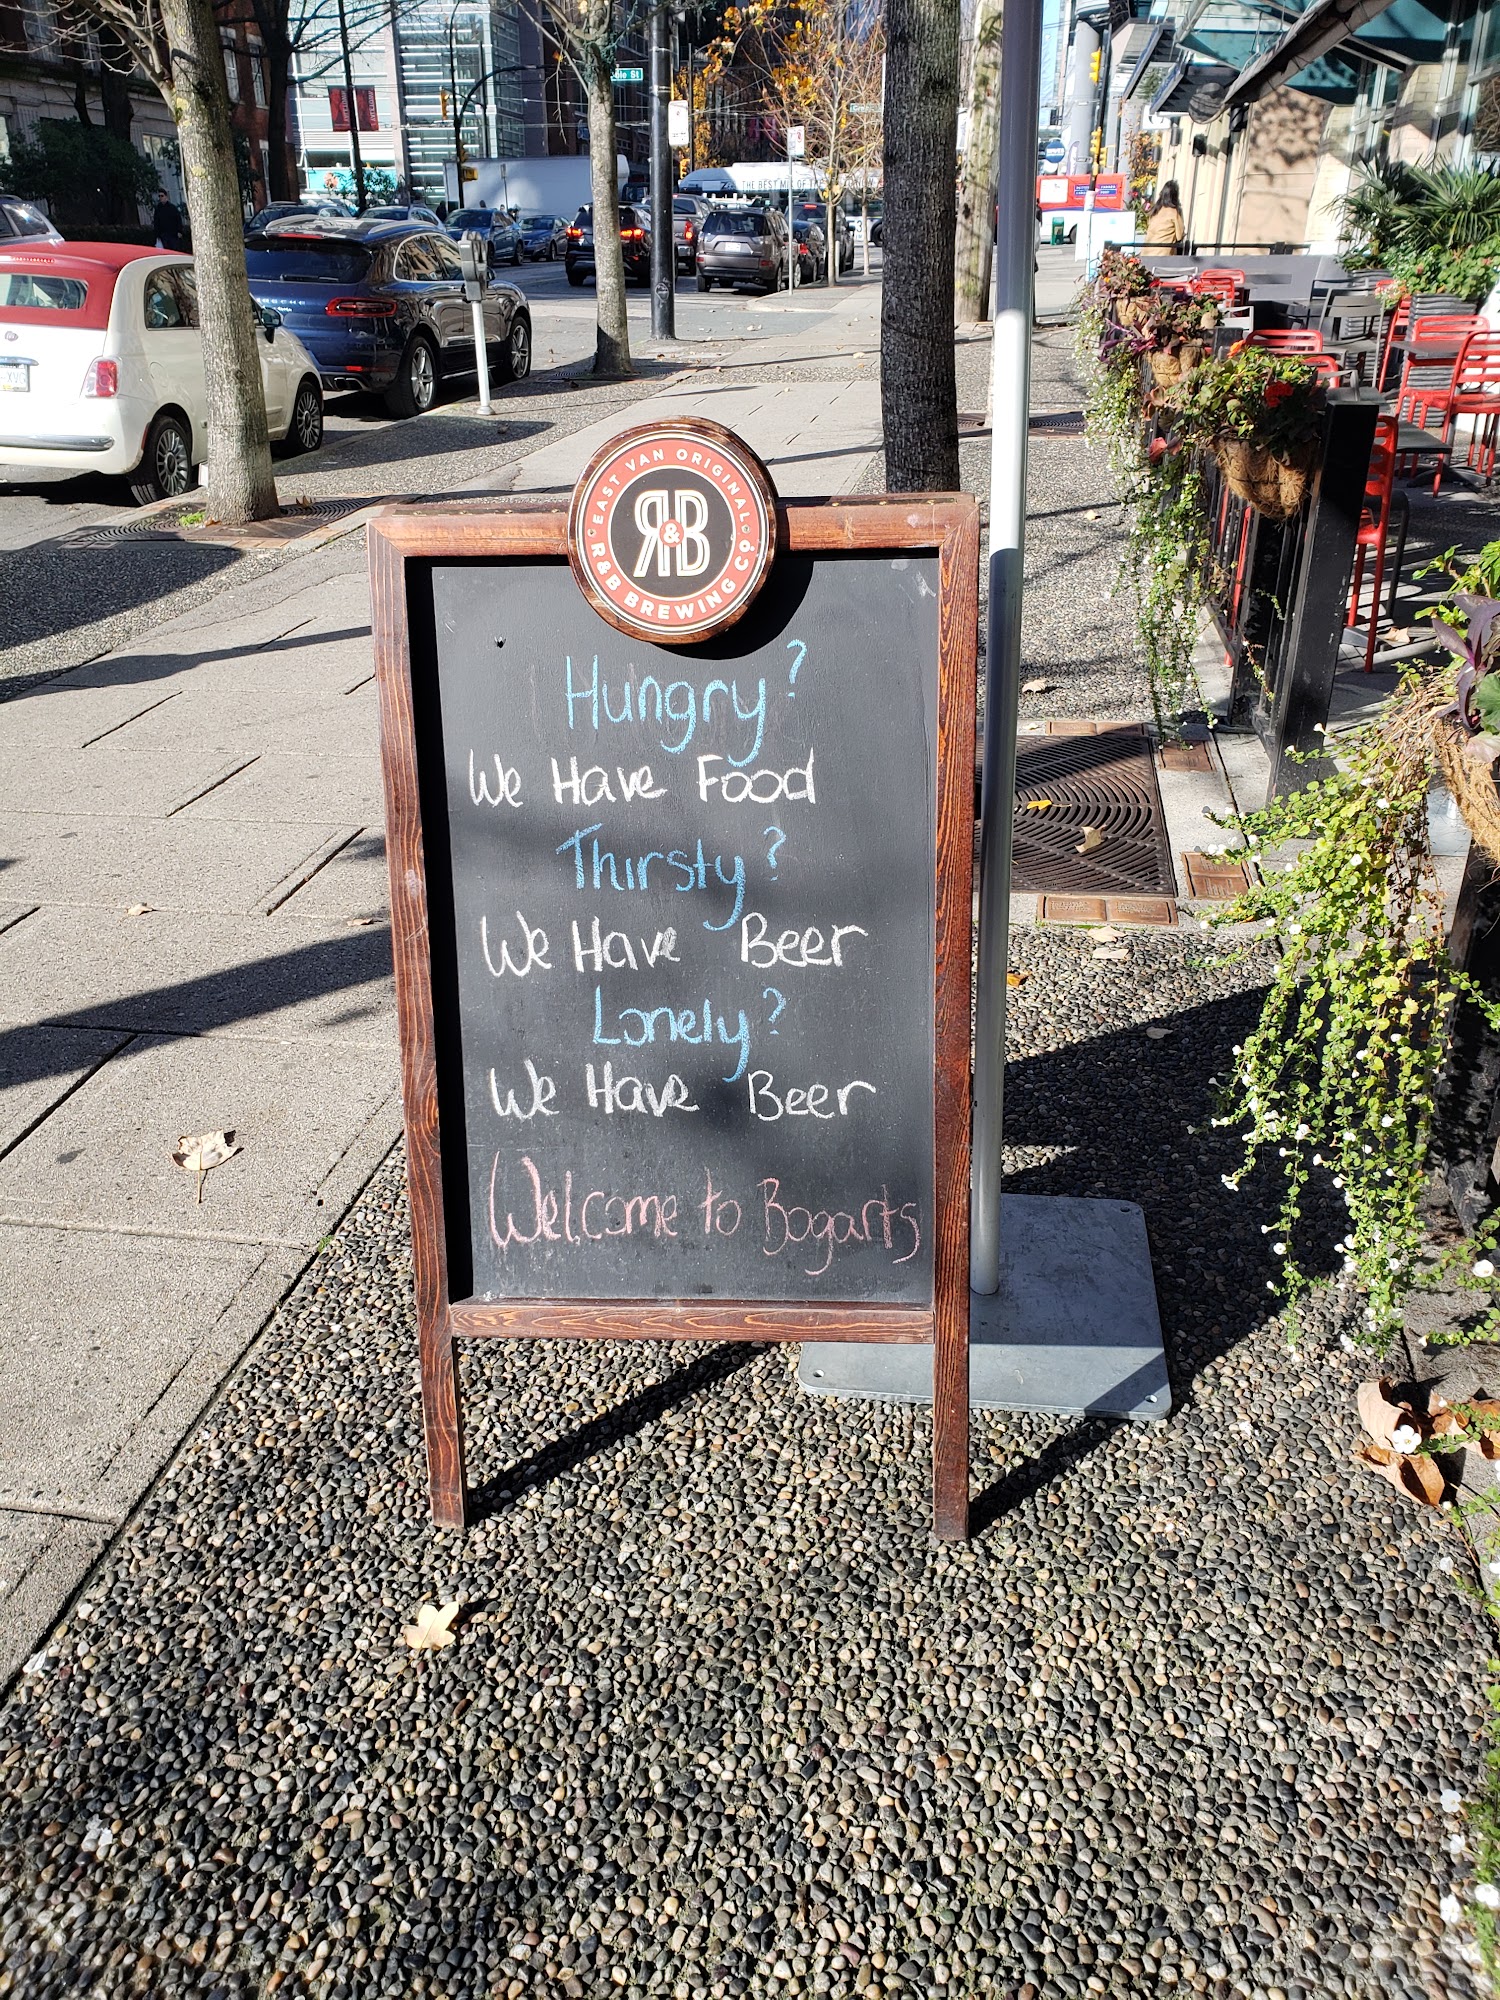 THE BEST
EAST VAN ORIGINAL
R&B
R&B BREWING CO.
Hungry?
We Have Food
Thirsty?
We Have Beer
Lonely?
We Have Beer
Welcome to Bogarts